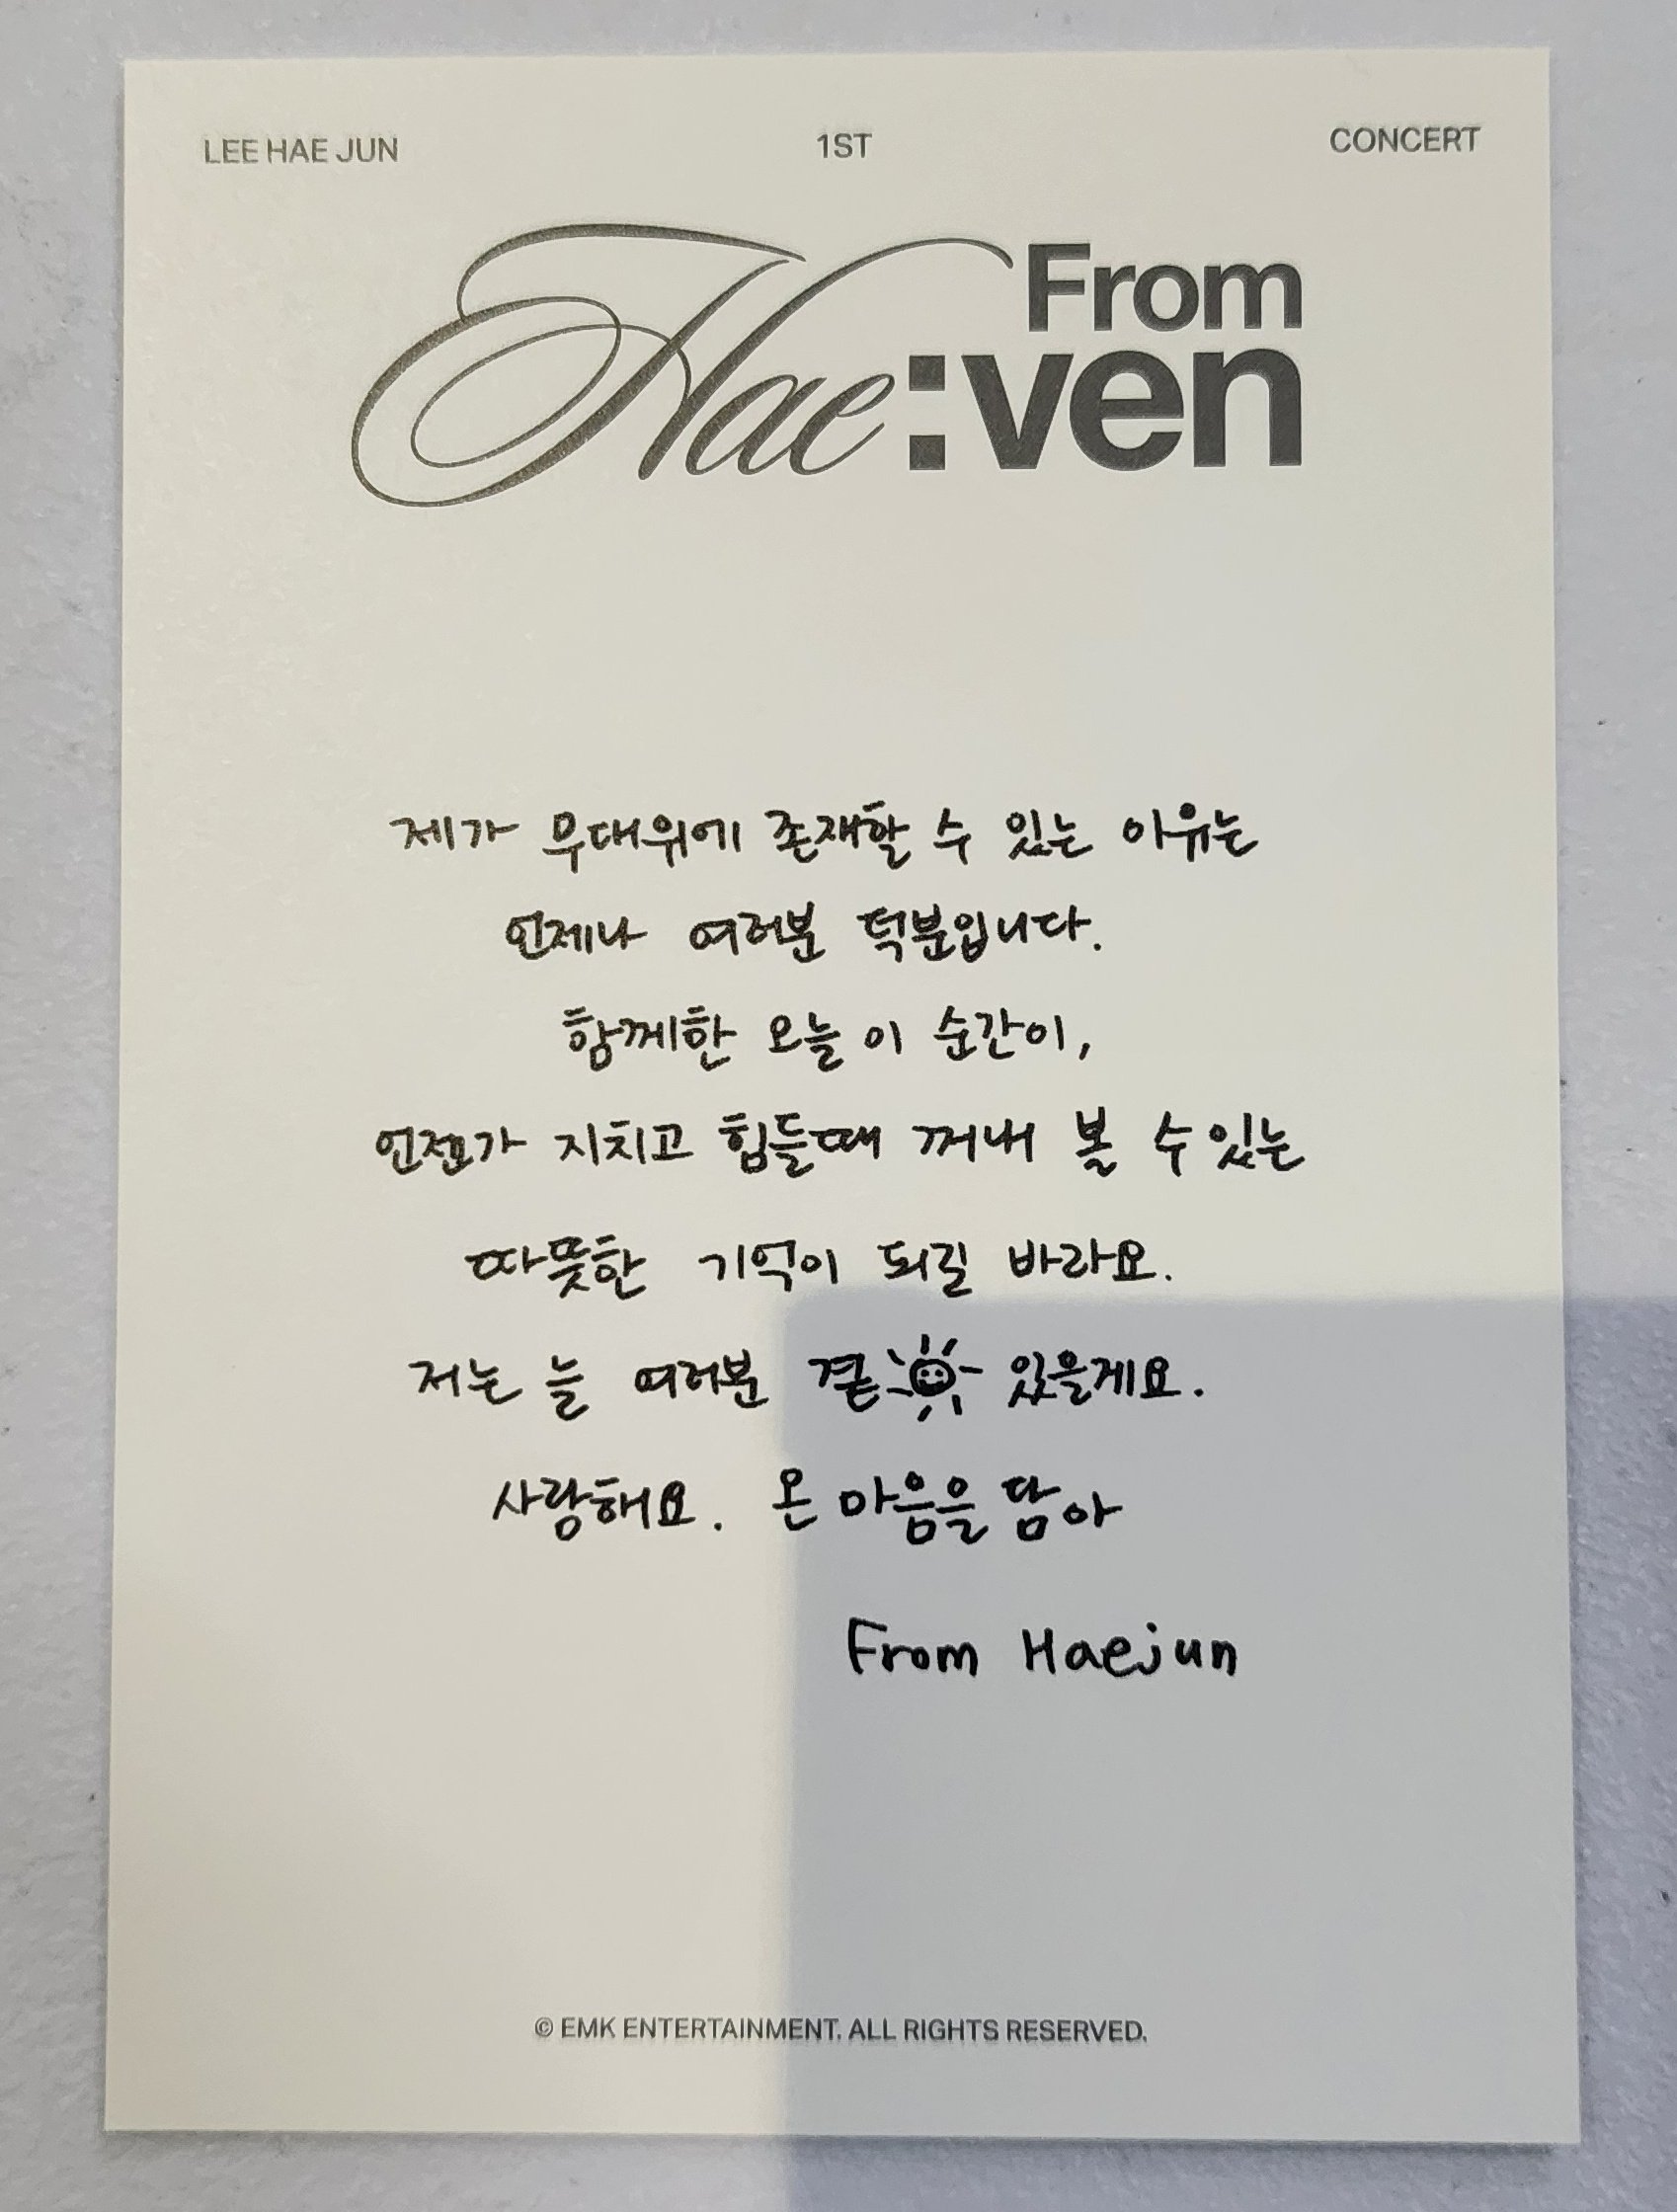 LEE HAE JUN 1ST CONCERT
From
Hae:ven
제가 무대위에 존재할 수 있는 이유는
언제나 여러분 덕분입니다.
함께한 오늘 이 순간이,
언젠가 지치고 힘들때 꺼내 볼 수 있는
따뜻한 기억이 되길 바라요.
저는 늘 여러분 곁 있을게요.
사랑해요. 온 마음을 담아
From Haejun
© EMK ENTERTAINMENT. ALL RIGHTS RESERVED.